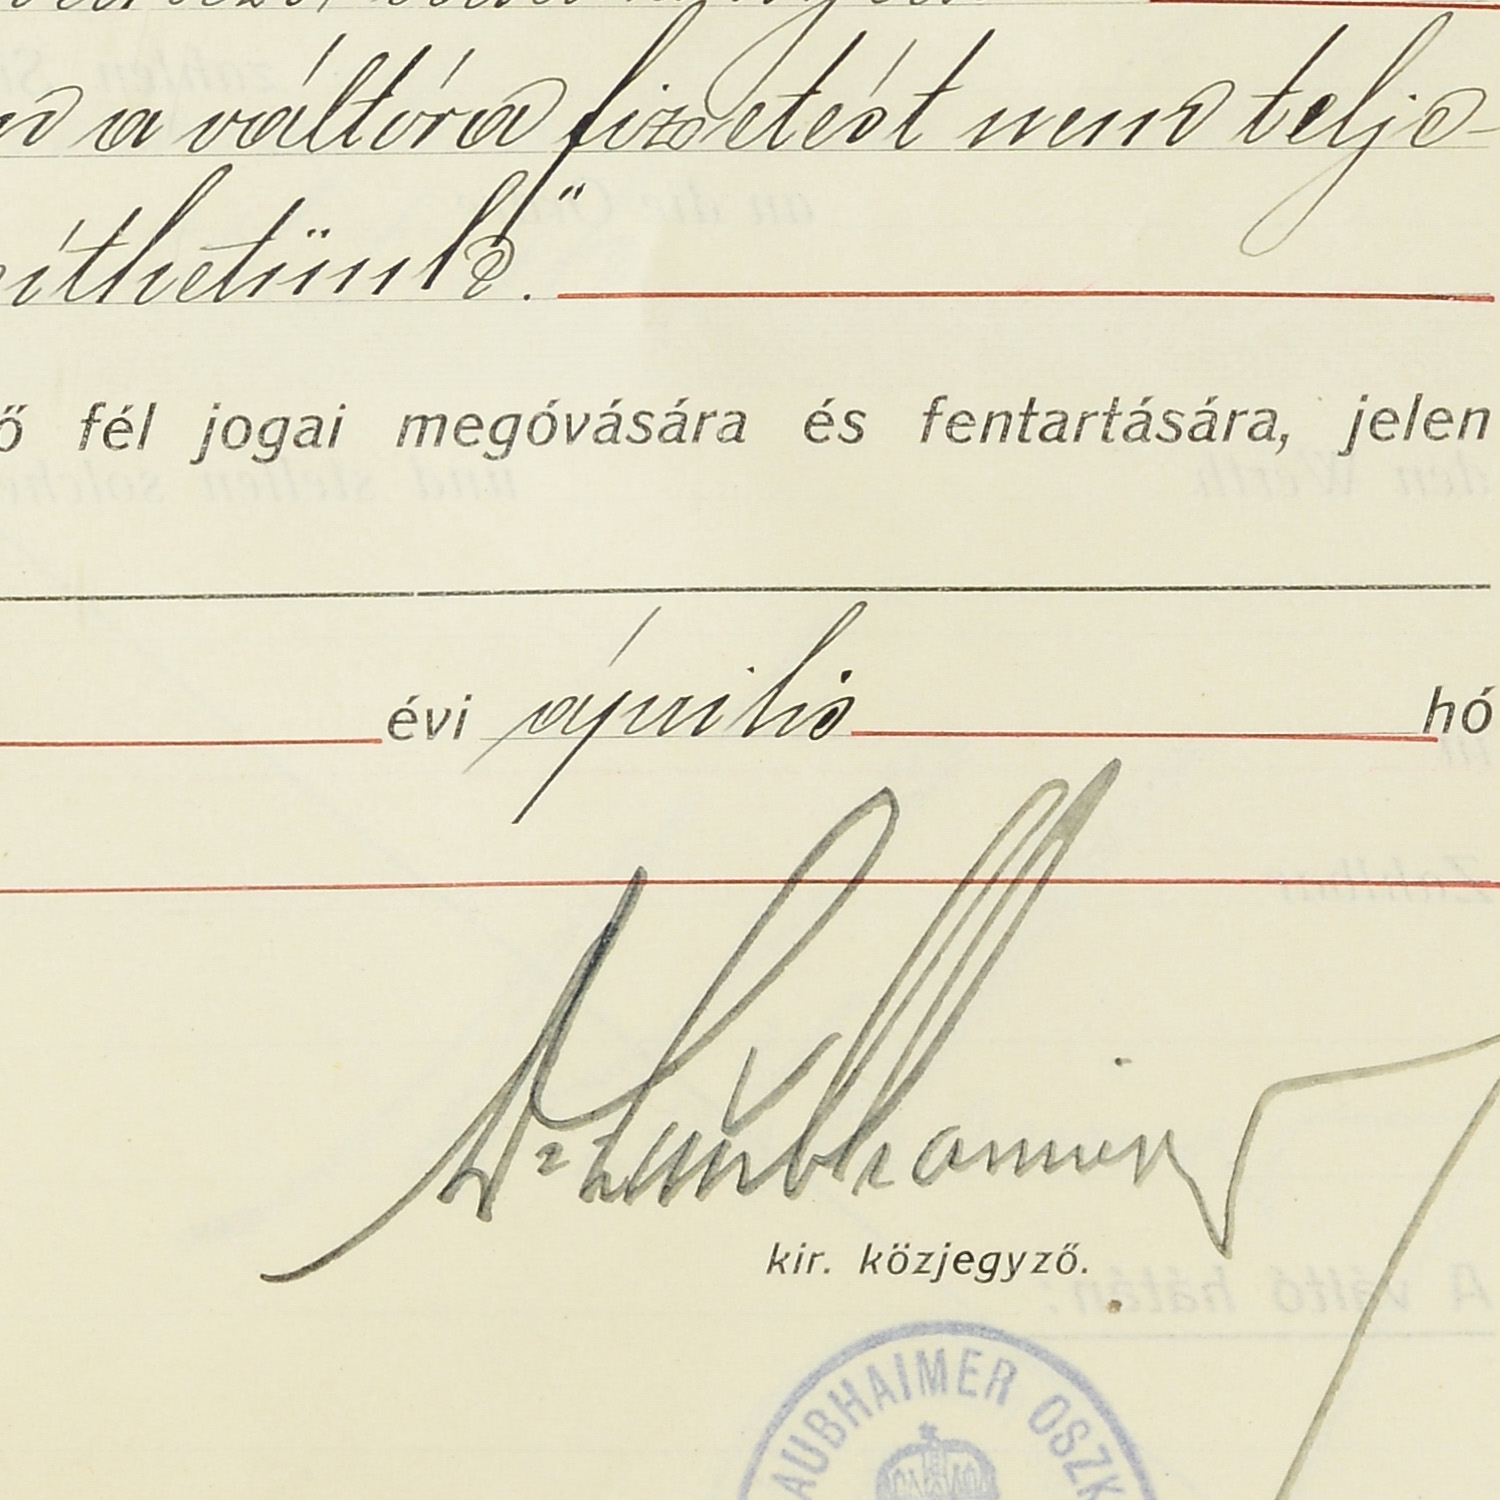 a váltóra fizetést nem telje-
síthetünk".
ő fél jogai megóvására és fentartására, jelen
évi április hó
Dr Laubhaimer
kir. közjegyző.
AUBHAIMER OSZK